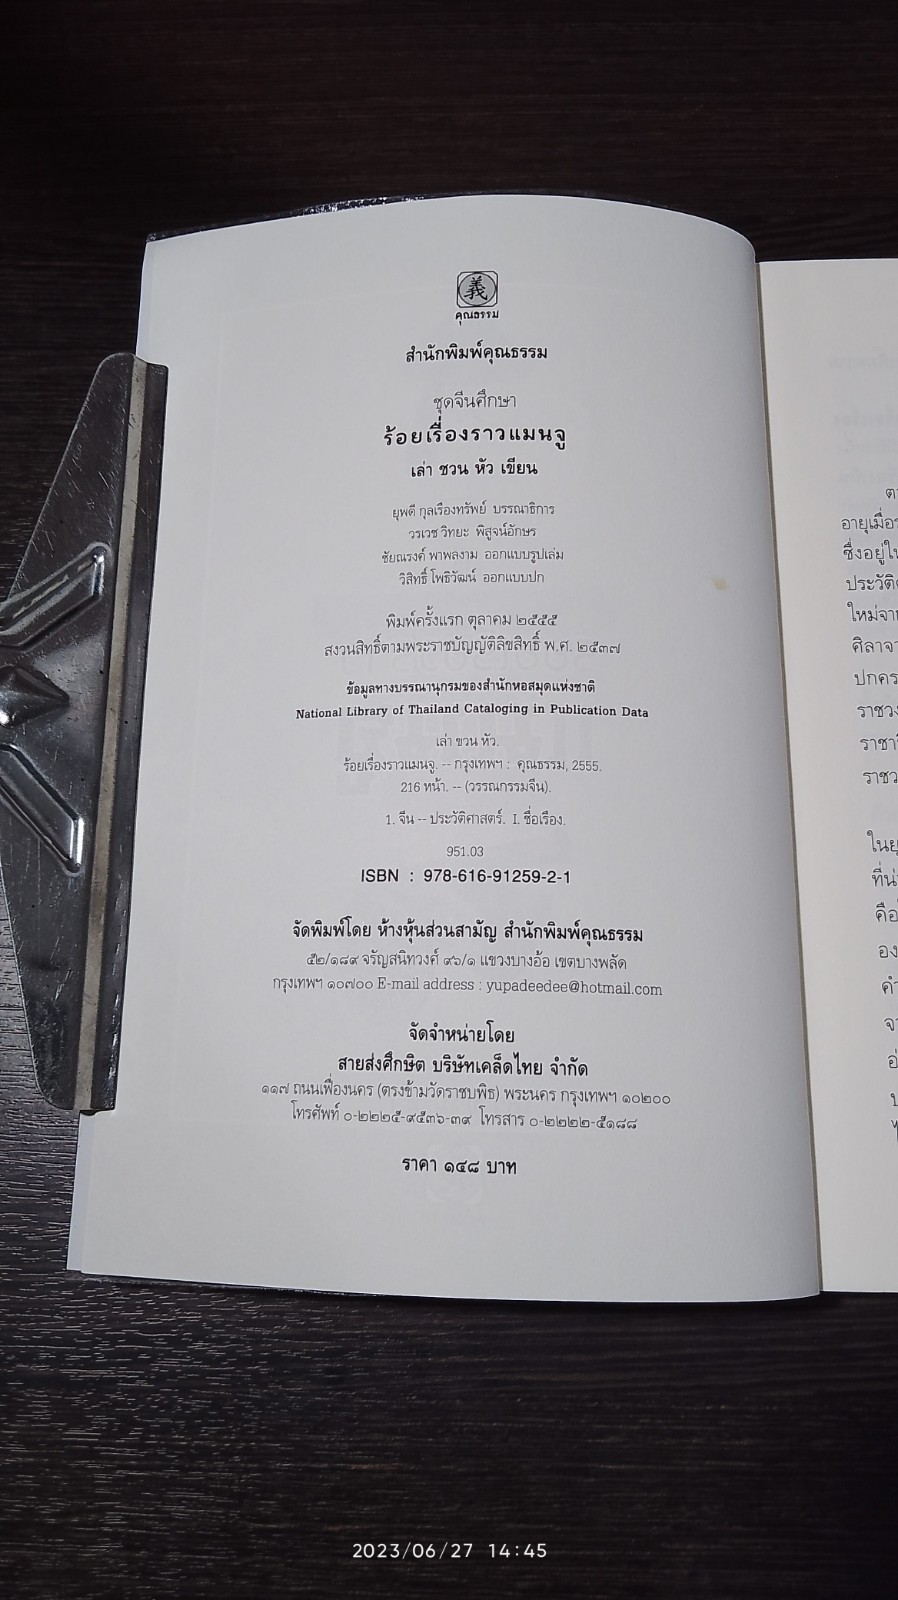 義
คุณธรรม
สำนักพิมพ์คุณธรรม
ชุดจีนศึกษา
ร้อยเรื่องราวแมนจู
เล่า ชวน หัว เขียน
ยุพดี กุลเรืองทรัพย์ บรรณาธิการ
วรเวช วิทยะ พิสูจน์อักษร
ชัยณรงค์ พาพลงาม ออกแบบรูปเล่ม
วิสิทธิ์ โพธิวัฒน์ ออกแบบปก
พิมพ์ครั้งแรก ตุลาคม ๒๕๕๕
สงวนสิทธิ์ตามพระราชบัญญัติลิขสิทธิ์ พ.ศ. ๒๕๓๗
ข้อมูลทางบรรณานุกรมของสำนักหอสมุดแห่งชาติ
National Library of Thailand Cataloging in Publication Data
เล่า ชวน หัว.
ร้อยเรื่องราวแมนจู. -- กรุงเทพฯ : คุณธรรม, 2555.
216 หน้า. -- (วรรณกรรมจีน).
1. จีน -- ประวัติศาสตร์. I. ชื่อเรื่อง.
951.03
ISBN : 978-616-91259-2-1
จัดพิมพ์โดย ห้างหุ้นส่วนสามัญ สำนักพิมพ์คุณธรรม
๕๒/๑๘๙ จรัญสนิทวงศ์ ๙๖/๑ แขวงบางอ้อ เขตบางพลัด
กรุงเทพฯ ๑๐๗๐๐ E-mail address : yupadeedee@hotmail.com
จัดจำหน่ายโดย
สายส่งศึกษิต บริษัทเคล็ดไทย จำกัด
๑๑๗ ถนนเฟื่องนคร (ตรงข้ามวัดราชบพิธ) พระนคร กรุงเทพฯ ๑๐๒๐๐
โทรศัพท์ ๐-๒๒๒๕-๙๕๓๖-๓๙ โทรสาร ๐-๒๒๒๒-๕๑๘๘
ราคา ๑๔๘ บาท
อายุเมื่อ
ซึ่งอยู่ใน
ประวัติ
ใหม่จาก
ศิลาจา
ปกคร
ราชวง
ราชา
ราชว
ในยุ
ที่น่
คือ
อง
คำ
จา
2023/06/27 14:45